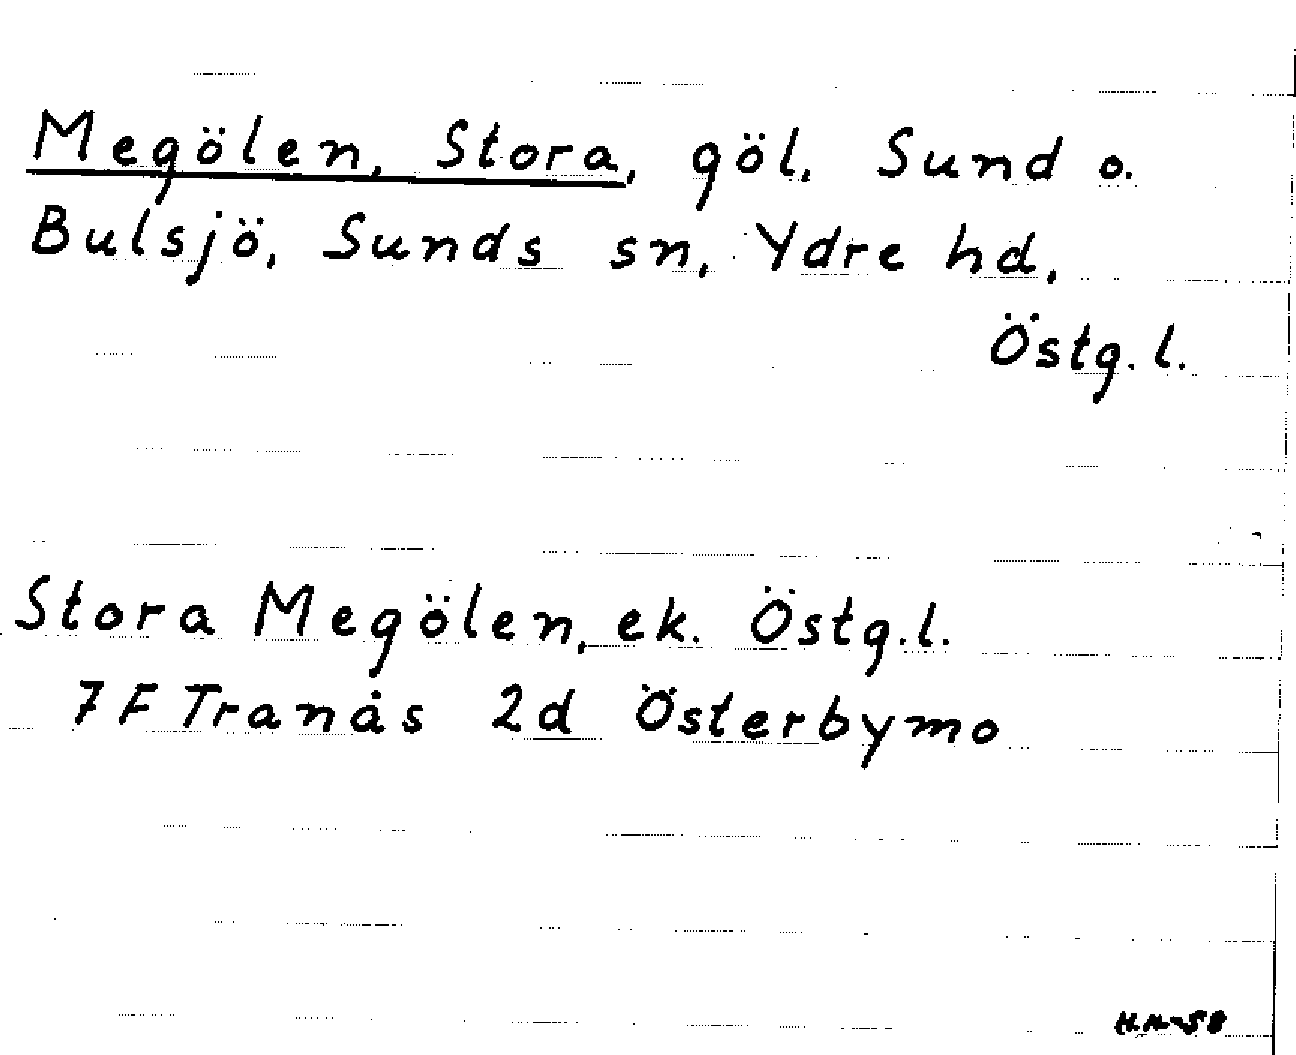 Megölen, Stora, göl, Sund o.
Bulsjö, Sunds sn, Ydre hd,
Östg. l.
Stora Megölen, ek. Östg. l.
7F Tranås 2d Österbymo